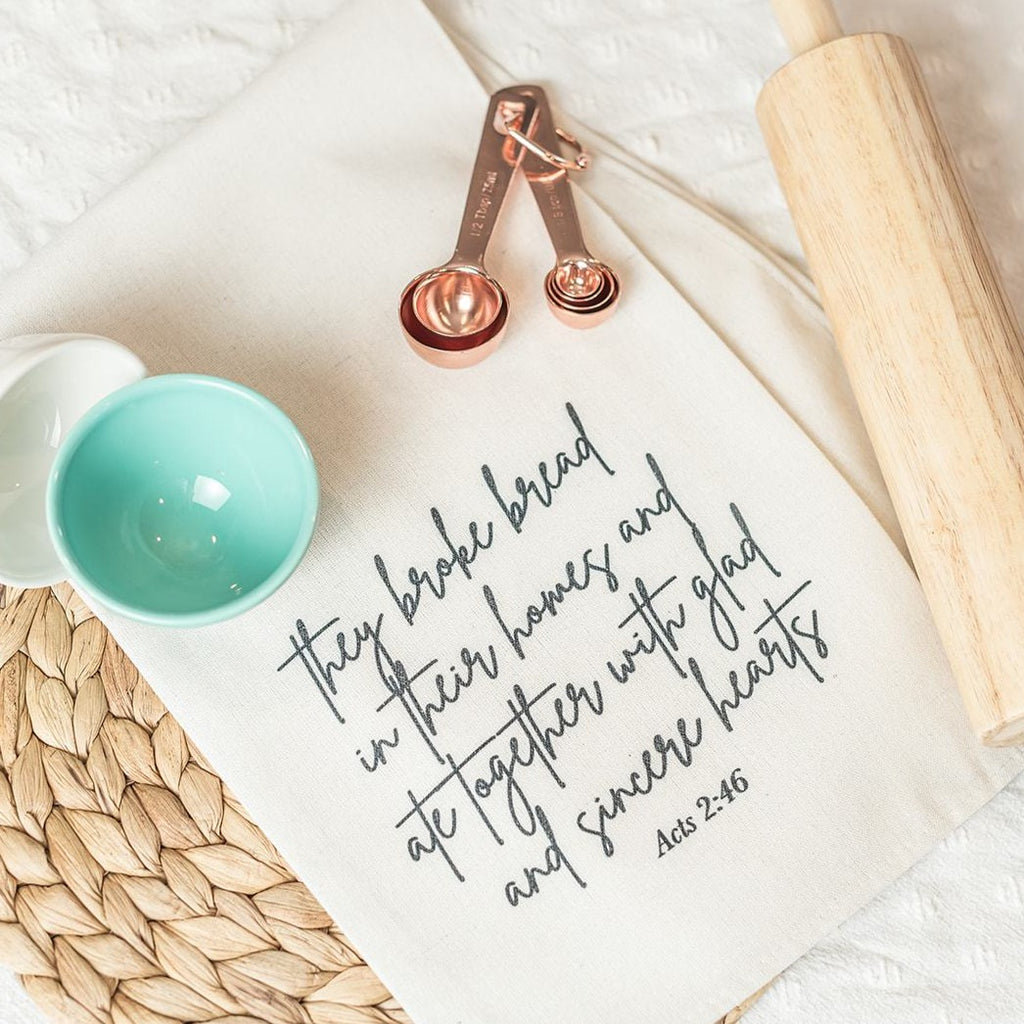 1/2 Tbsp/7.5ml
they broke bread
in their homes and
ate together with glad
and sincere hearts
Acts 2:46